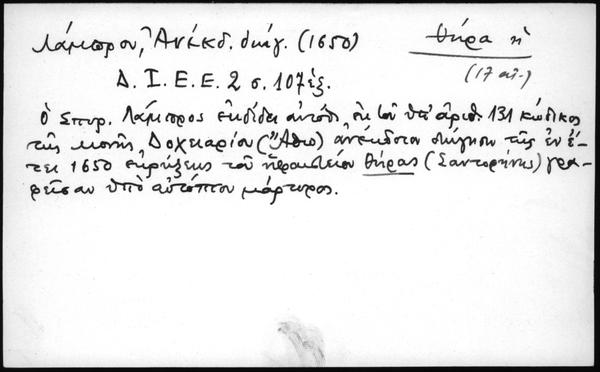 Λάμπρου, Ἀνέκδ. διήγ. (1650)
Θήρα ἡ
(17 αἰ.)
Δ. Ι. Ε. Ε. 2 σ. 107 ἑξ.
Ὁ Σπυρ. Λάμπρος ἐκδίδει αὐτόθι ἐκ τοῦ ὑπ' ἀριθ. 131 κώδικος
τῆς μονῆς Δοχειαρίου (Ἄθω) ἀνέκδοτον διήγησιν τῆς ἐν ἔ-
τει 1650 ἐκρήξεως τοῦ ἡφαιστείου Θήρας (Σαντορήνης) γρα-
φεῖσαν ὑπὸ αὐτόπτου μάρτυρος.